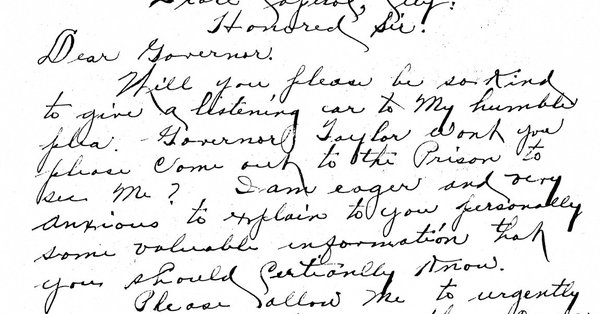 State Capitol, City.
Honored Sir:
Dear Governor.
Will you please be so kind
to give a listening ear to My humble
plea. Governor Taylor wont you
please Come out to the Prison to
see Me? I am eager and very
anxious to explain to you personally
some valuable information that
you should Certianlly Know.
Please allow Me to urgently